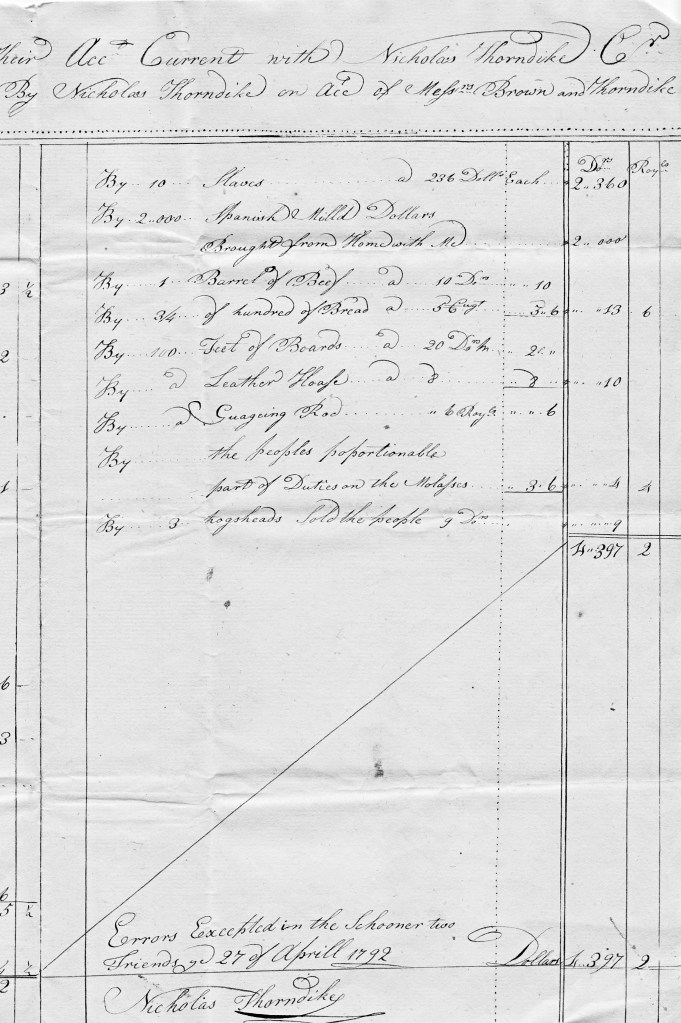 Their Acct Current with Nicholas Thorndike Cr
By Nicholas Thorndike on Acct of Messrs Brown and Thorndike
Dors Roys
By 10 Slaves a 236 Dollrs Each 2..360
By 2..000 Spanish Milld Dollars
Brought from Home with Me 2..000
3 ½ By 1 Barrel of Beef a 10 Dors 10
By 3/4 of hundred of Bread a 5 Cugt 3..6 13 6
2 By 100 Feet of Boards a 20 Dors M 2
By a Leather Hoase a 8 8 10
By a Guageing Rod 6 Roys 6
By the peoples poportionable
1 part of Duties on the Molasses 3..6 4 4
By 3 hogsheads Sold the people 9 Dors 9
4..397 2
6
3
6
5 ½
Errors Excepted in the Schooner two
Friends ye 27 of Aprill 1792 Dollars 4..397 2
4 ½
2
Nicholas Thorndike